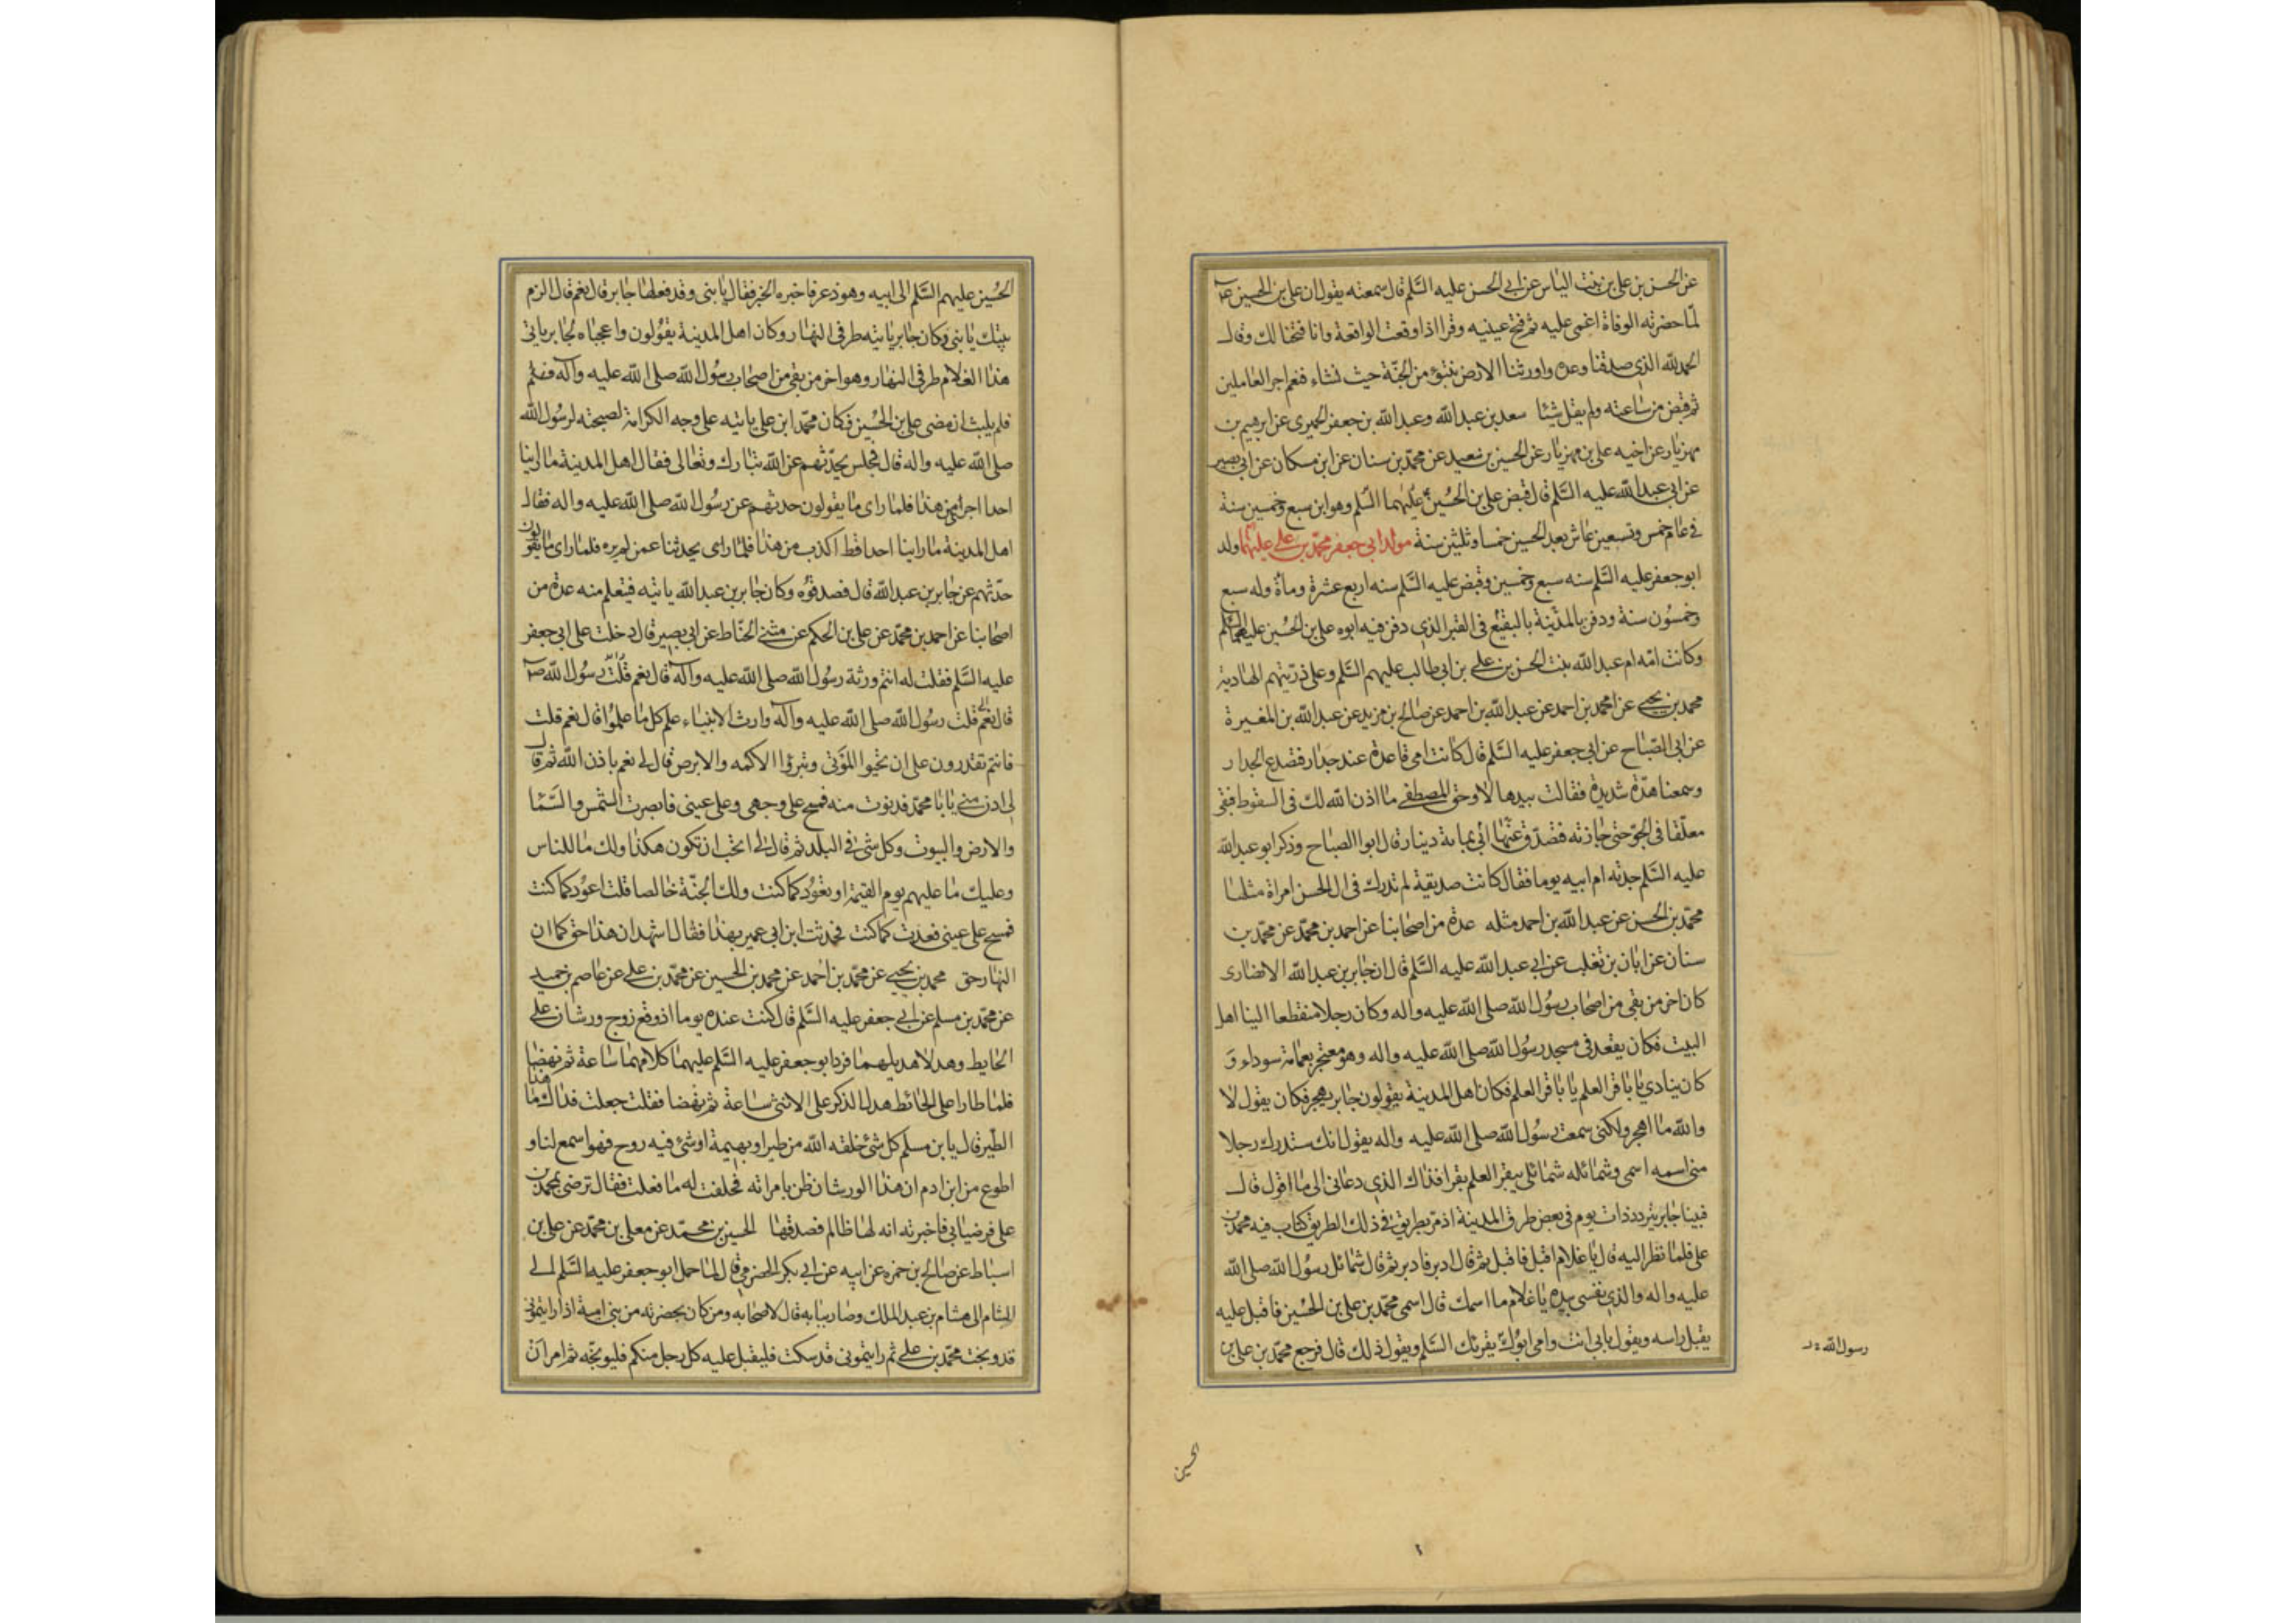 عن الحسن بن علي بن بنت الياس عن ابي الحسن عليه السلم قال سمعته يقول ان علي بن الحسين ع
لما حضرته الوفاة اغمي عليه ثم فتح عينيه وقرا اذا وقعت الواقعة وانا فتحنا لك وقال
الحمد لله الذي صدقنا وعده واورثنا الارض نتبوء من الجنة حيث نشاء فنعم اجر العاملين
ثم قبض من ساعته ولم يقل شيئا سعد بن عبد الله وعبد الله بن جعفر الحميري عن ابرهيم بن
مهزيار عن اخيه علي بن مهزيار عن الحسين بن سعيد عن محمد بن سنان عن ابن مسكان عن ابي بصير
عن ابي عبد الله عليه السلم قال قبض علي بن الحسين عليهما السلم وهو ابن سبع وخمسين سنة
في عام خمس وتسعين عاش بعد الحسين خمسا وثلثين سنة مولد ابي جعفر محمد بن علي عليهما ولد
ابو جعفر عليه السلم سنه سبع وخمسين وقبض عليه السلم سنه اربع عشرة ومأة وله سبع
وخمسون سنة ودفن بالمدينة بالبقيع في القبر الذي دفن فيه ابوه علي بن الحسين عليهما السلم
وكانت امه ام عبد الله بنت الحسن بن علي بن ابي طالب عليهم السلم وعلى ذريتهم الهادية
محمد بن يحيى عن محمد بن احمد عن عبد الله بن احمد عن صالح بن مزيد عن عبد الله بن المغيرة
عن ابي الصباح عن ابي جعفر عليه السلم قال كانت امي قاعدة عند جدار فتصدع الجدار
وسمعنا هدة شديدة فقالت بيدها لا وحق المصطفى ما اذن الله لك في السقوط فبقي
معلقا في الجو حتى جازته فتصدق عنها ابي بمائة دينار قال ابو الصباح وذكر ابو عبد الله
عليه السلم جدته ام ابيه يوما فقال كانت صديقة لم تدرك في ال الحسن امراة مثلها
محمد بن الحسن عن عبد الله بن احمد مثله عدة من اصحابنا عن احمد بن محمد عن محمد بن
سنان عن ابان بن تغلب عن ابي عبد الله عليه السلم قال ان جابر بن عبد الله الانصاري
كان اخر من بقي من اصحاب رسول الله صلى الله عليه واله وكان رجلا منقطعا الينا اهل
البيت فكان يقعد في مسجد رسول الله صلى الله عليه واله وهو معتجر بعمامة سوداء و
كان ينادي يا باقر العلم يا باقر العلم فكان اهل المدينة يقولون جابر يهجر فكان يقول لا
والله ما اهجر ولكني سمعت رسول الله صلى الله عليه واله يقول انك ستدرك رجلا
مني اسمه اسمي وشمائله شمائلي يبقر العلم بقرا فذاك الذي دعاني الى ما اقول قال
فبينا جابر يتردد ذات يوم في بعض طرق المدينة اذ مر بطريق في ذلك الطريق كتاب فيه محمد بن
علي فلما نظر اليه قال يا غلام اقبل فاقبل ثم قال ادبر فادبر ثم قال شمائل رسول الله صلى الله
عليه واله والذي نفسي بيده يا غلام ما اسمك قال اسمي محمد بن علي بن الحسين فاقبل عليه
يقبل راسه ويقول بابي انت وامي ابوك يقرئك السلم ويقول ذلك قال فرجع محمد بن علي بن
رسول الله
الحسين
الحسين عليهم السلم الى ابيه وهو ذعر فاخبره الخبر فقال يا بني وقد فعلها جابر قال نعم قال الزم
بيتك يا بني فكان جابر ياتيه طرفي النهار وكان اهل المدينة يقولون واعجباه لجابر ياتي
هذا الغلام طرفي النهار وهو اخر من بقي من اصحاب رسول الله صلى الله عليه وآله فقلم
فلم يلبث ان مضى علي بن الحسين فكان محمد ابن علي ياتيه على وجه الكرامة لصحبته لرسول الله
صلى الله عليه واله قال فجلس يحدثهم عن الله تبارك وتعالى فقال اهل المدينة ما راينا
احدا اجرا من هذا فلما راى ما يقولون حدثهم عن رسول الله صلى الله عليه واله فقال
اهل المدينة ما راينا احدا قط اكذب من هذا فلما راى يحدثنا عمن لم يره فلما راى ما يقولون
حدثهم عن جابر بن عبد الله قال فصدقوه وكان جابر بن عبد الله ياتيه فيتعلم منه عدة من
اصحابنا عن احمد بن محمد عن علي بن الحكم عن مثنى الحناط عن ابي بصير قال دخلت على ابي جعفر
عليه السلم فقلت له انتم ورثة رسول الله صلى الله عليه وآله قال نعم قلت رسول الله ص
قال نعم قلت رسول الله صلى الله عليه وآله وارث الانبياء علم كل ما علموا قال نعم قلت
فانتم تقدرون على ان تحيوا الموتى وتبرؤا الاكمه والابرص قال لي نعم باذن الله ثم قال
لي ادن مني يا با محمد فدنوت منه فمسح على وجهي وعلى عيني فابصرت الشمس والسما
والارض والبيوت وكل شئ في البلد ثم قال لي اتحب ان تكون هكذا ولك ما للناس
وعليك ما عليهم يوم القيمة او تعود كما كنت ولك الجنة خالصا قلت اعود كما كنت
فمسح على عيني فعدت كما كنت فحدثت ابن ابي عمير بهذا فقال اشهد ان هذا حق كما ان
النهار حق محمد بن يحيى عن محمد بن احمد عن محمد بن الحسين عن محمد بن علي عن عاصم بن حميد
عن محمد بن مسلم عن ابي جعفر عليه السلم قال كنت عنده يوما اذ وقع زوج ورشان على
الحايط وهدلا هديلهما فرد ابو جعفر عليه السلم عليهما كلامهما ساعة ثم نهضا
فلما طارا على الحائط هدل الذكر على الانثى ساعة ثم نهضا فقلت جعلت فداك ما هذا
الطير قال يا بن مسلم كل شئ خلقه الله من طير او بهيمة او شئ فيه روح فهو اسمع لنا و
اطوع من ابن ادم ان هذا الورشان ظن بامراته فحلفت له ما فعلت فقال ترضى بمحمد بن
علي فرضيا بي فاخبرته انه لها ظالم فصدقها الحسين بن محمد عن معلى بن محمد عن علي بن
اسباط عن صالح بن حمزه عن ابيه عن ابي بكر الحضرمي قال لما حمل ابو جعفر عليه السلم الى
الشام الى هشام بن عبد الملك وصار ببابه قال لاصحابه ومن كان بحضرته من بني امية اذا رايتموني
قد وبخت محمد بن علي ثم رايتموني قد سكت فليقبل عليه كل رجل منكم فليوبخه ثم امر ان